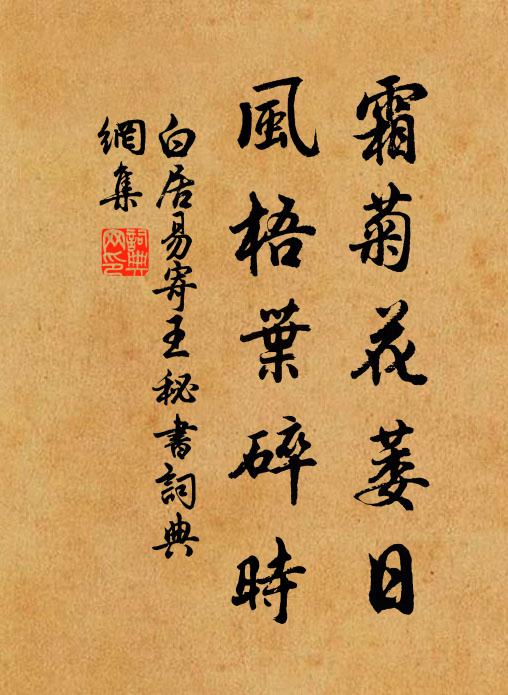 霜菊花萎日
風梧葉碎時
白居易寄王秘書詞典
網集
詞典
網印